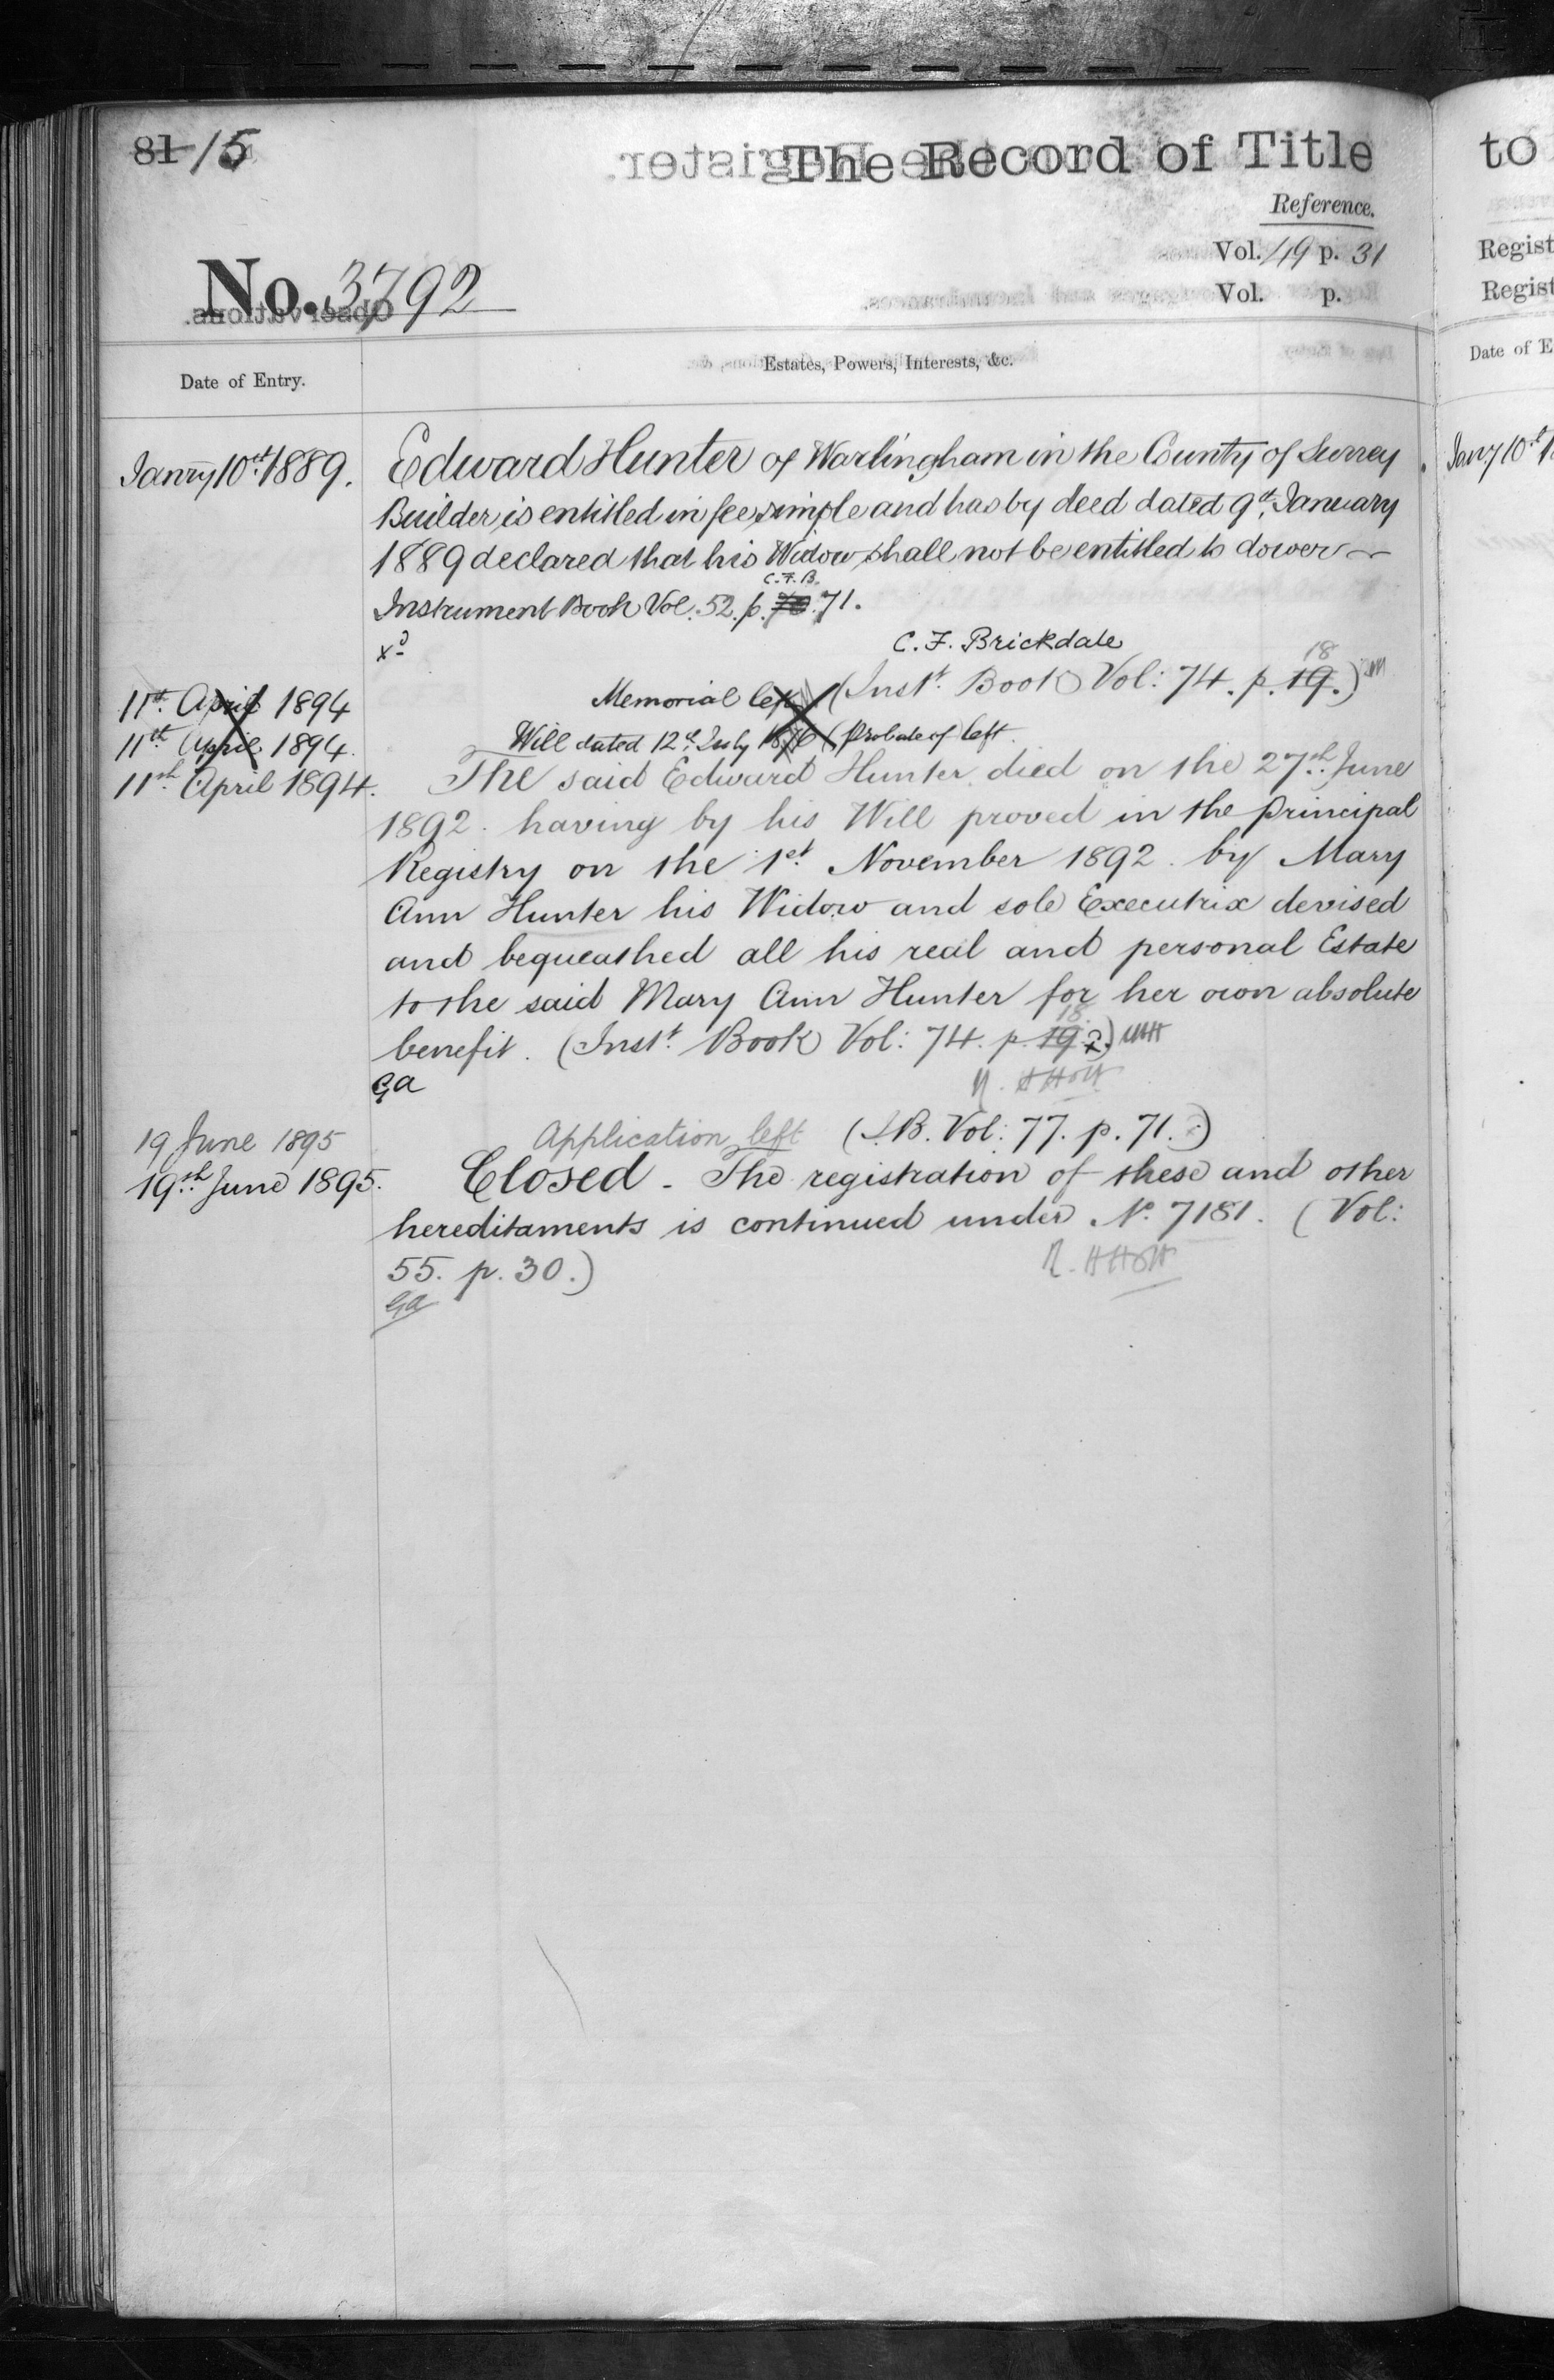 81 15
The Record of Title
to
Reference.
Vol. 49 p. 31
Vol. p.
No. 3792
Regist
Regist
Date of Entry.
Estates, Powers, Interests, &c.
Date of E
Janry 10th 1889.
Edward Hunter of Warlingham in the County of Surrey
Builder is entitled in fee simple and has by deed dated 9th January
1889 declared that his Widow shall not be entitled to dower
C.F.B.
Instrument Book Vol. 52. p. 70. 71.
xd
C. F. Brickdale
18
11th April 1894 Memorial left (Inst. Book Vol: 74. p. 19.)
11th April 1894. Will dated 12th July (Probate of) left.
11th April 1894. The said Edward Hunter died on the 27th June
1892. having by his Will proved in the Principal
Registry on the 1st November 1892. by Mary
Ann Hunter his Widow and sole Executrix devised
and bequeathed all his real and personal Estate
to the said Mary Ann Hunter for her own absolute
18
benefit. (Inst. Book Vol: 74. p. 19.)
GA
19 June 1895 Application left (I.B. Vol: 77. p. 71.)
19th June 1895. Closed - The registration of these and other
hereditaments is continued under No. 7181. (Vol:
55. p. 30.)
GA
Janry 10th 1